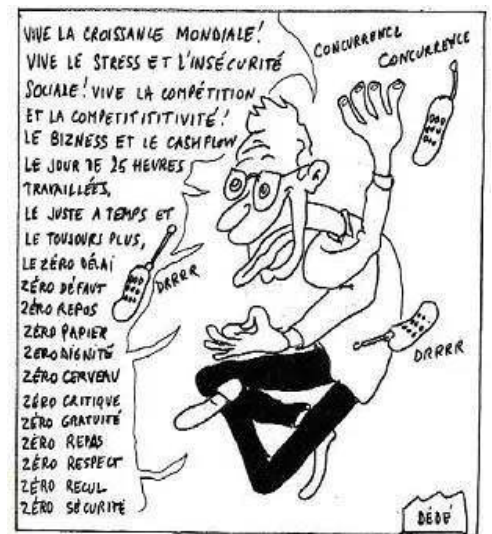 VIVE LA CROISSANCE MONDIALE!
VIVE LE STRESS ET L'INSÉCURITÉ
SOCIALE! VIVE LA COMPÉTITION
ET LA COMPETITITITIVITÉ!
LE BIZNESS ET LE CASHFLOW
LE JOUR DE 25 HEURES
TRAVAILLÉES,
LE JUSTE A TEMPS ET
LE TOUJOURS PLUS,
LE ZÉRO DÉLAI
ZÉRO DÉFAUT
ZÉRO REPOS
ZÉRO PAPIER
ZERO DIGNITÉ
ZÉRO CERVEAU
ZÉRO CRITIQUE
ZÉRO GRATUITÉ
ZÉRO REPAS
ZÉRO RESPECT
ZÉRO RECUL
ZÉRO SÉCURITÉ
CONCURRENCE
CONCURRENCE
DRRRR
DRRRR
DÉDÉ